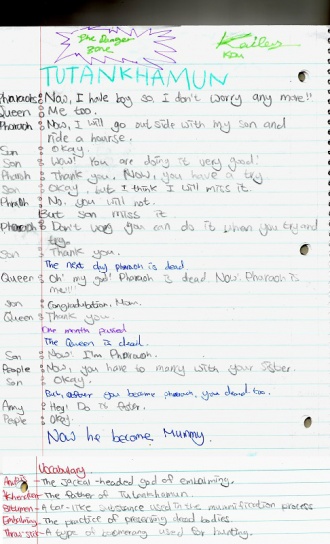 The Danger
Zone
Kailey
Kim
TUTANKHAMUN
Pharaoh: Now, I have boy so I don't worry any more!!
Queen: Me too.
Pharaoh: Now, I will go outside with my son and
ride a hourse.
Son: Okay.
Son: Wow! You are doing it very good!
Pharoh: Thank you. Now, you have a try
Son: Okay, but I think I will miss it.
Pharaoh: No, you will not.
But son miss it
Pharaoh: Don't worry you can do it when you try and
try.
Son: Thank you.
The next day pharaoh is dead
Queen: Oh! my god! Pharaoh is dead. Now. Pharaoh is
me!!!
Son: Congradutation, Mom.
Queen: Thank you.
One month passed
The Queen is dead.
Son: Now! I'm Pharaoh.
People: Now, you have to marry with your sister.
Son: Okay.
But, after you become pharaoh, you dead too.
Amy: Hey! Do it faster.
People: Okay.
Now he become Mummy.
Vocabulary
Anubis - The jackal-headed god of embalming.
Akhenaten - The father of Tutankhamun.
Bitumen - A tar-like substance used in the mummification process
Embalming - The practice of preserving dead bodies.
Throw stick - A type of boomerang used for hunting.